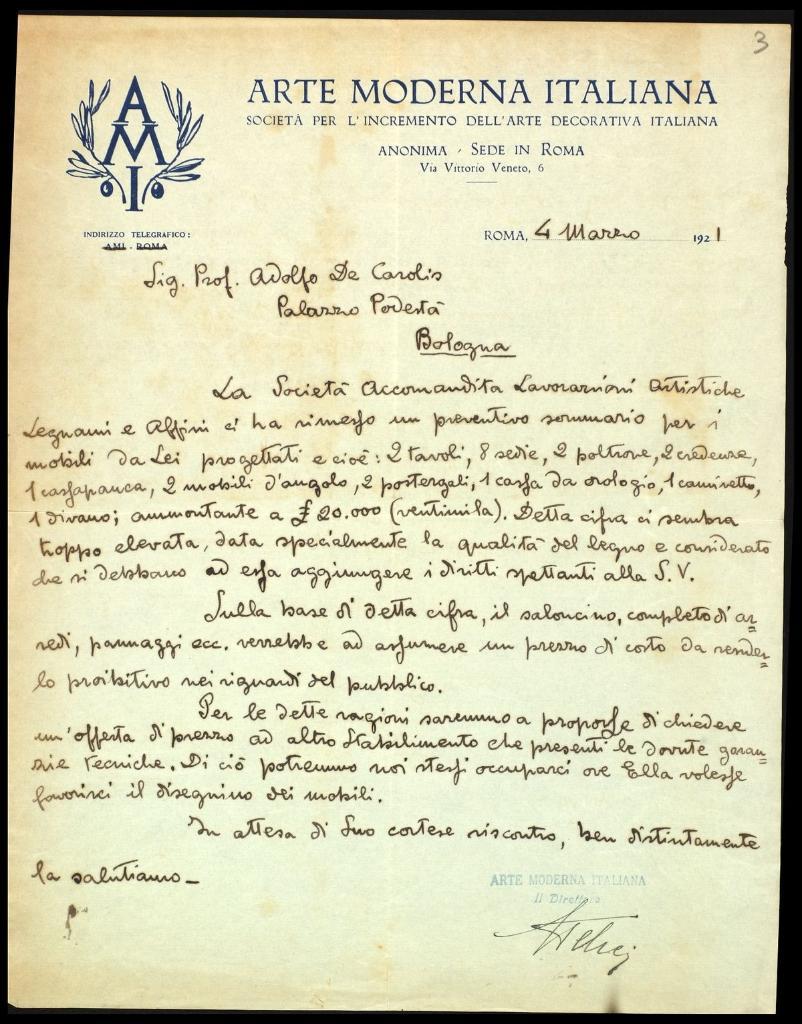 3
AMI
ARTE MODERNA ITALIANA
SOCIETÀ PER L'INCREMENTO DELL'ARTE DECORATIVA ITALIANA
ANONIMA - SEDE IN ROMA
Via Vittorio Veneto, 6
INDIRIZZO TELEGRAFICO:
AMI - ROMA
ROMA, 4 Marzo 1921
Sig. Prof. Adolfo De Carolis
Palazzo Podestà
Bologna
La Società Accomandita Lavorazioni Artistiche
Legnami e Affini ci ha rimesso un preventivo sommario per i
mobili da Lei progettati e cioè: 2 tavoli, 8 sedie, 2 poltrone, 2 credenze,
1 cassapanca, 2 mobili d'angolo, 2 postergali, 1 cassa da orologio, 1 caminetto,
1 divano; ammontante a £ 20.000 (ventimila). Detta cifra ci sembra
troppo elevata, data specialmente la qualità del legno e considerato
che si debbano ad essa aggiungere i diritti spettanti alla S. V.
Sulla base di detta cifra, il saloncino, completo di ar=
redi, pannaggi ecc. verrebbe ad assumere un prezzo di costo da render=
lo proibitivo nei riguardi del pubblico.
Per le dette ragioni saremmo a proporLe di chiedere
un'offerta di prezzo ad altro Stabilimento che presenti le dovute garan=
zie tecniche. Di ciò potremmo noi stessi occuparci ove Ella volesse
favorirci il disegnino dei mobili.
In attesa di Suo cortese riscontro, ben distintamente
la salutiamo -
ARTE MODERNA ITALIANA
Il Direttore